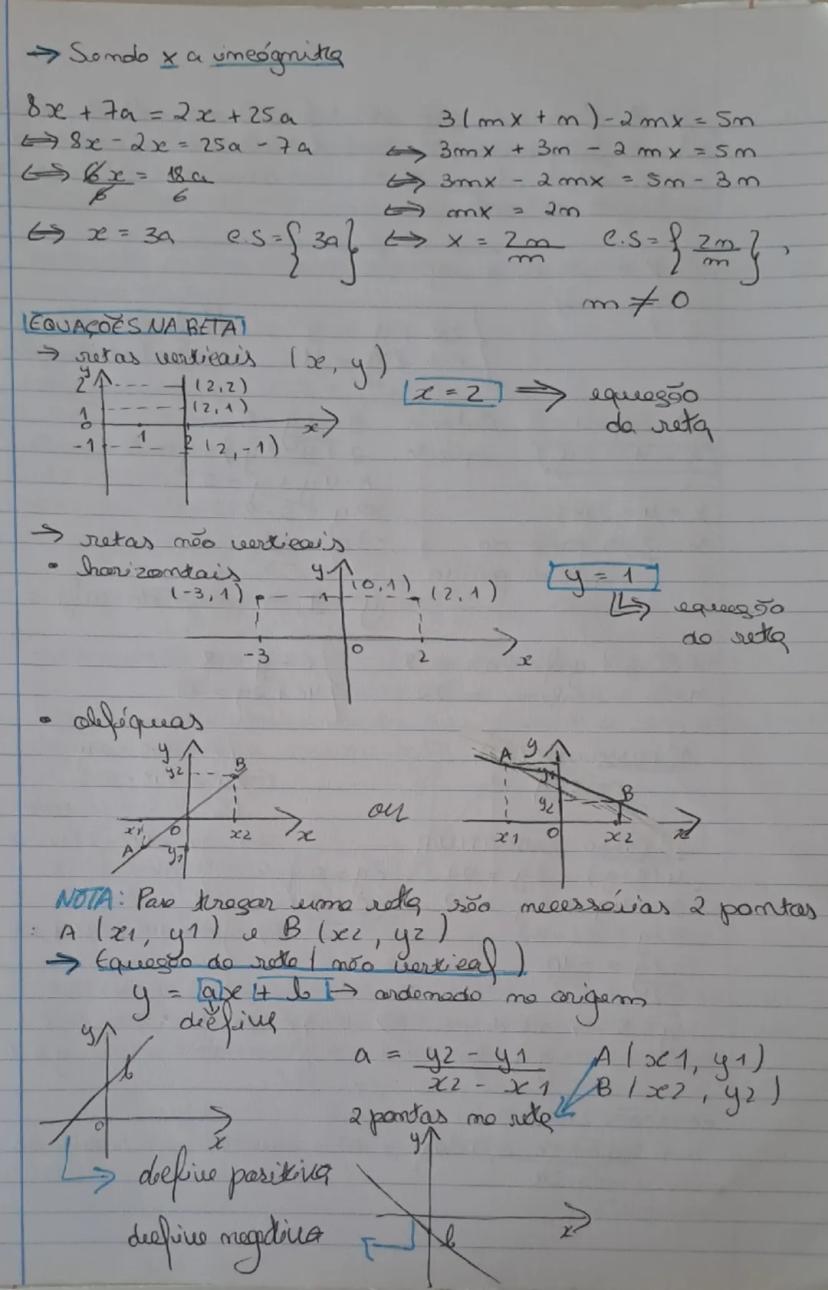 → Sendo x a incógnita
8x + 7a = 2x + 25a
⇔ 8x - 2x = 25a - 7a
⇔ 6x/6 = 18a/6
⇔ x = 3a C.S = {3a}
3(mx + n) - 2mx = 5n
⇔ 3mx + 3n - 2mx = 5n
⇔ 3mx - 2mx = 5n - 3n
⇔ mx = 2n
⇔ x = 2n/m C.S = {2n/m},
m ≠ 0
EQUAÇÕES NA RETA
→ retas verticais (x, y)
y
2 (2,2)
1 (2,1)
0 1 2 x
-1 (2,-1)
x = 2 ⇒ equação
da reta
→ retas não verticais
• horizontais
y
(-3,1) 1 (0,1) (2,1)
-3 0 2 x
y = 1
↳ equação
da reta
• oblíquas
y
y2 B
x1 0 x2 x
A y1
ou
A y
y1
y2 B
x1 0 x2 x
NOTA: Para traçar uma reta são necessárias 2 pontos
: A (x1, y1) e B (x2, y2)
→ Equação da reta (não vertical)
y = ax + b → ordenada na origem
declive
y
b
0
x
a = y2 - y1 / x2 - x1
A (x1, y1)
B (x2, y2)
2 pontos na reta
declive positivo
y
x
b
declive negativo